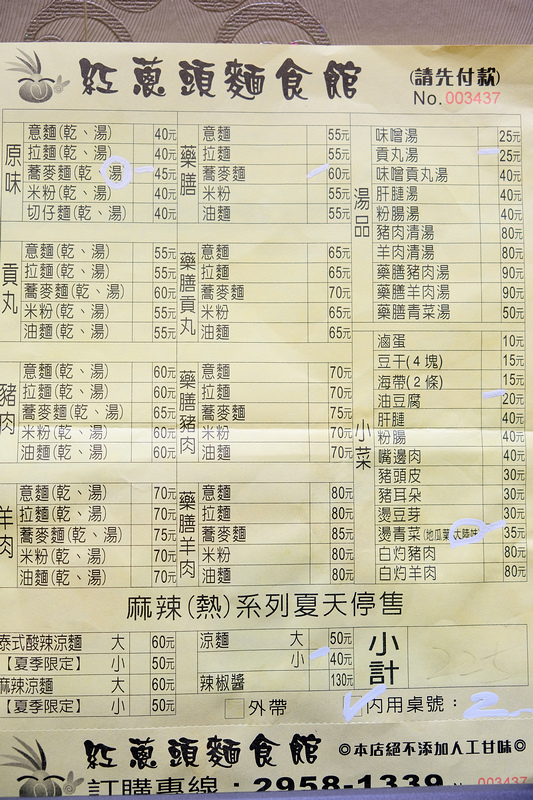 紅蔥頭麵食館
(請先付款)
No. 003437
原味
意麵(乾、湯) 40元
拉麵(乾、湯) 40元
蕎麥麵(乾、湯) 45元
米粉(乾、湯) 40元
切仔麵(乾、湯) 40元
貢丸
意麵(乾、湯) 55元
拉麵(乾、湯) 55元
蕎麥麵(乾、湯) 60元
米粉(乾、湯) 55元
油麵(乾、湯) 55元
豬肉
意麵(乾、湯) 60元
拉麵(乾、湯) 60元
蕎麥麵(乾、湯) 65元
米粉(乾、湯) 60元
油麵(乾、湯) 60元
羊肉
意麵(乾、湯) 70元
拉麵(乾、湯) 70元
蕎麥麵(乾、湯) 75元
米粉(乾、湯) 70元
油麵(乾、湯) 70元
藥膳
意麵 55元
拉麵 55元
蕎麥麵 60元
米粉 55元
油麵 55元
藥膳貢丸
意麵 65元
拉麵 65元
蕎麥麵 70元
米粉 65元
油麵 65元
藥膳豬肉
意麵 70元
拉麵 70元
蕎麥麵 75元
米粉 70元
油麵 70元
藥膳羊肉
意麵 80元
拉麵 80元
蕎麥麵 85元
米粉 80元
油麵 80元
湯品
味噌湯 25元
貢丸湯 25元
味噌貢丸湯 40元
肝腱湯 40元
粉腸湯 40元
豬肉清湯 80元
羊肉清湯 80元
藥膳豬肉湯 90元
藥膳羊肉湯 90元
藥膳青菜湯 50元
小菜
滷蛋 10元
豆干(4塊) 15元
海帶(2條) 15元
油豆腐 20元
肝腱 40元
粉腸 40元
嘴邊肉 40元
豬頭皮 30元
豬耳朵 30元
燙豆芽 30元
燙青菜(地瓜葉 大陸妹 35元
白灼豬肉 80元
白灼羊肉 80元
麻辣(熱)系列夏天停售
泰式酸辣涼麵 大 60元
【夏季限定】 小 50元
麻辣涼麵 大 60元
【夏季限定】 小 50元
涼麵 大 50元
小 40元
辣椒醬 130元
小計
225
外帶
內用桌號：2
紅蔥頭麵食館
◎本店絕不添加人工甘味◎
訂購專線：2958-1339
003437